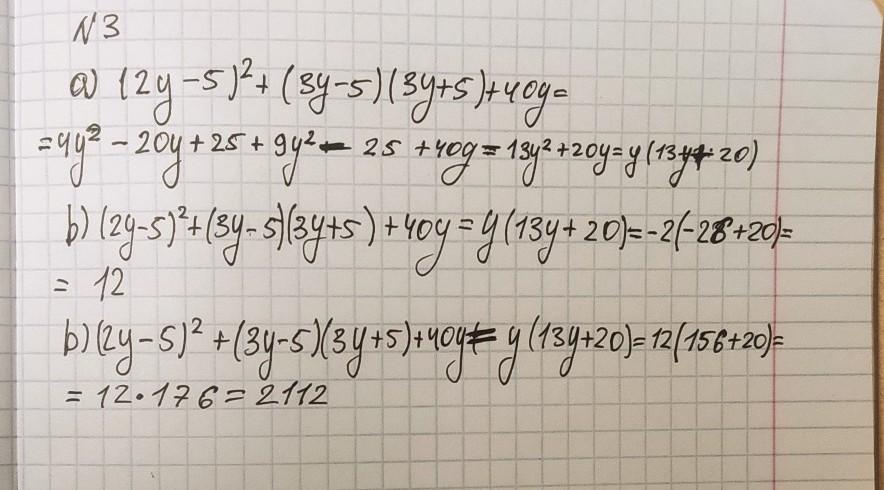 №3
а) (2y-5)²+(3y-5)(3y+5)+40y=
=4y²-20y+25+9y²-25+40y=13y²+20y=y(13y+20)
b) (2y-5)²+(3y-5)(3y+5)+40y=y(13y+20)=-2(-26+20)=
= 12
b) (2y-5)²+(3y-5)(3y+5)+40y=y(13y+20)=12(156+20)=
= 12·176=2112